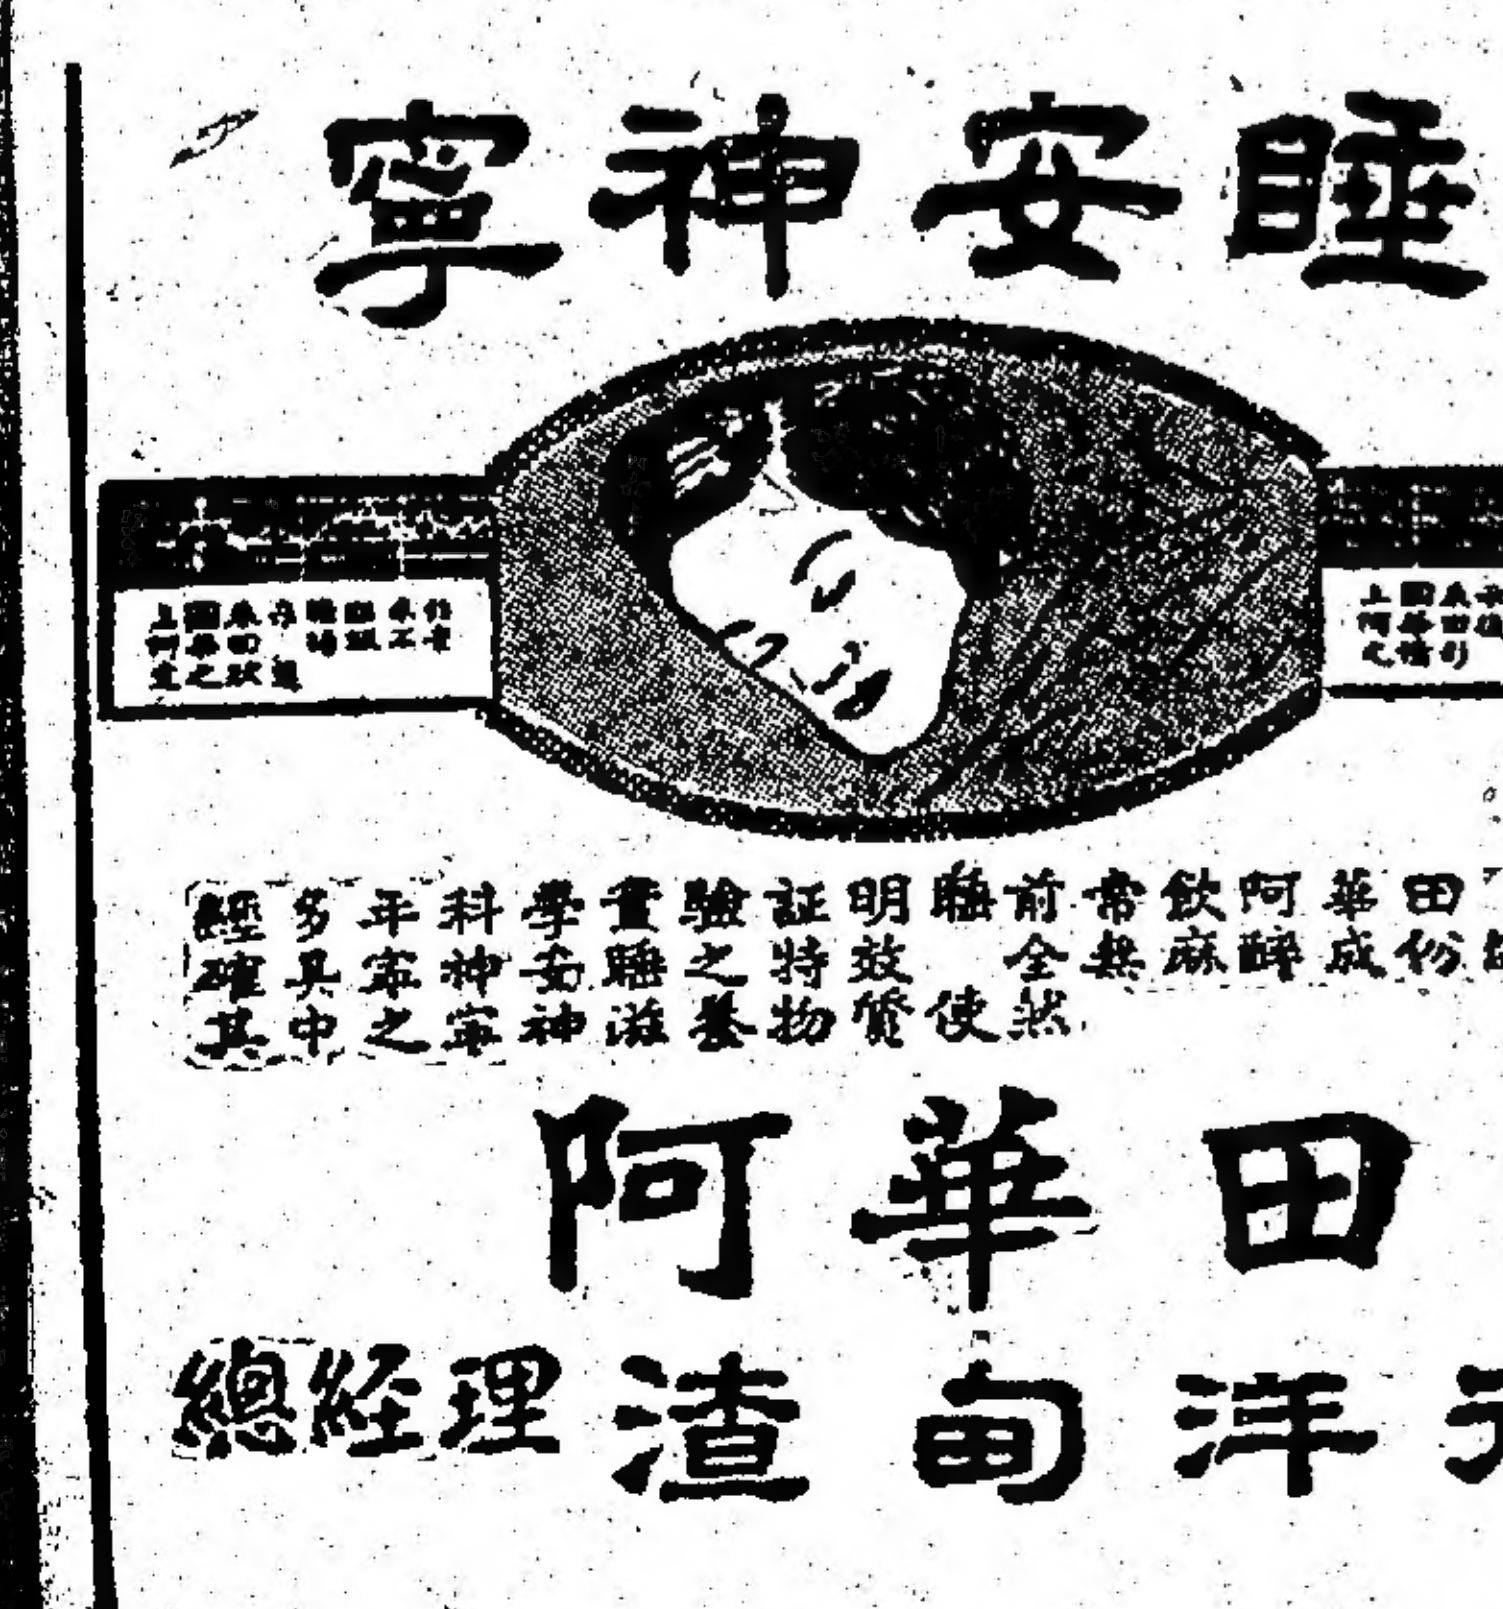 寧神安睡
上圖表示睡眠未
阿華田
定之狀態
上圖表
阿華田
之情形
經多年科學實驗証明睡前常飲阿華田
確具寧神安睡之特效 全無麻醉成份
其中之寧神滋養物質使然
阿華田
總經理 渣甸洋